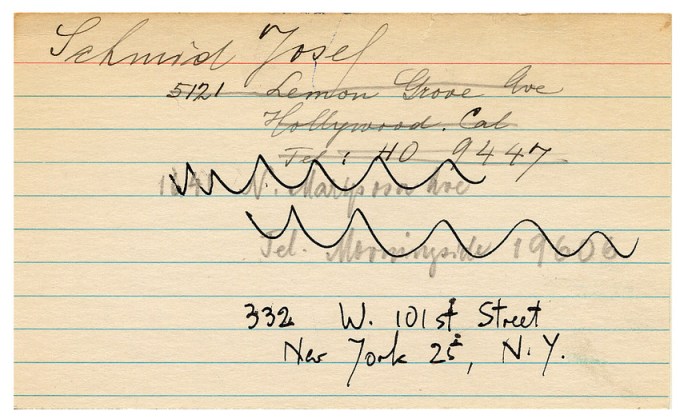 Schmid Josef
5121 Lemon Grove Ave
Hollywood. Cal
Tel: HO 9447
N. Mariposa Ave
Tel. Morningside 19606
332 W. 101st Street
New York 25, N.Y.